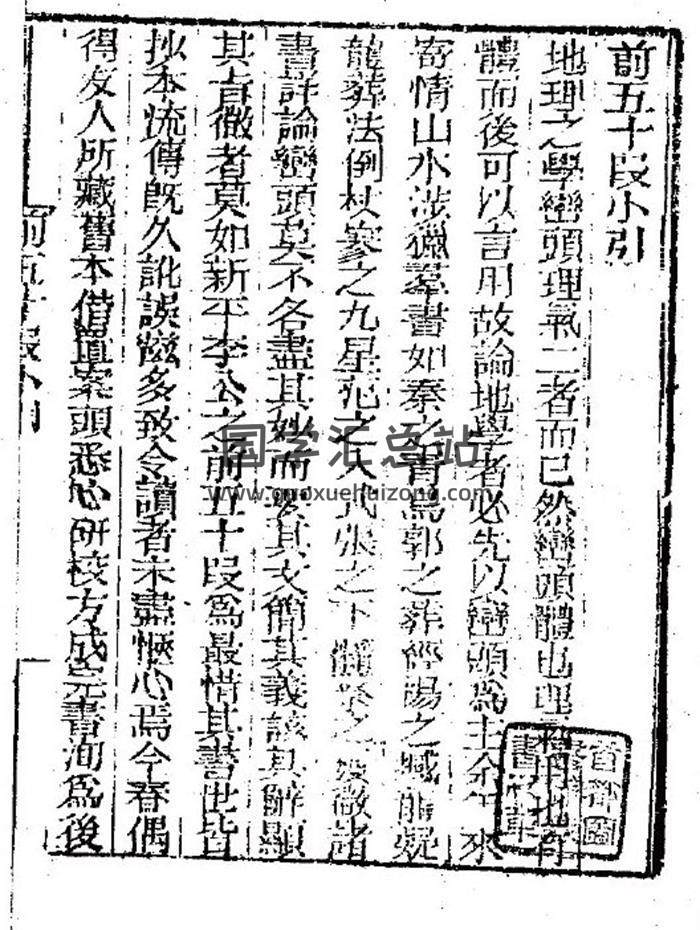 前五十段小引
地理之學巒頭理氣二者而已然巒頭體也理氣用也有
體而後可以言用故論地學者必先以巒頭爲主余年來
寄情山水涉獵羣書如秦之青烏郭之葬經楊之撼龍疑
龍葬法倒杖寥之九星范之入式張之下蔡之發微諸
書評論巒頭莫不各盡其妙而其文簡其義該其解顯
其旨微者莫如新平李公之前五十段爲最惜其書世皆
抄本流傳旣久訛誤滋多致令讀者未盡愜心焉今春偶
得友人所藏舊本借置案頭悉心研校方成完書洵爲後
前五十段小引
国学汇总站
www.guoxuehuizong.com